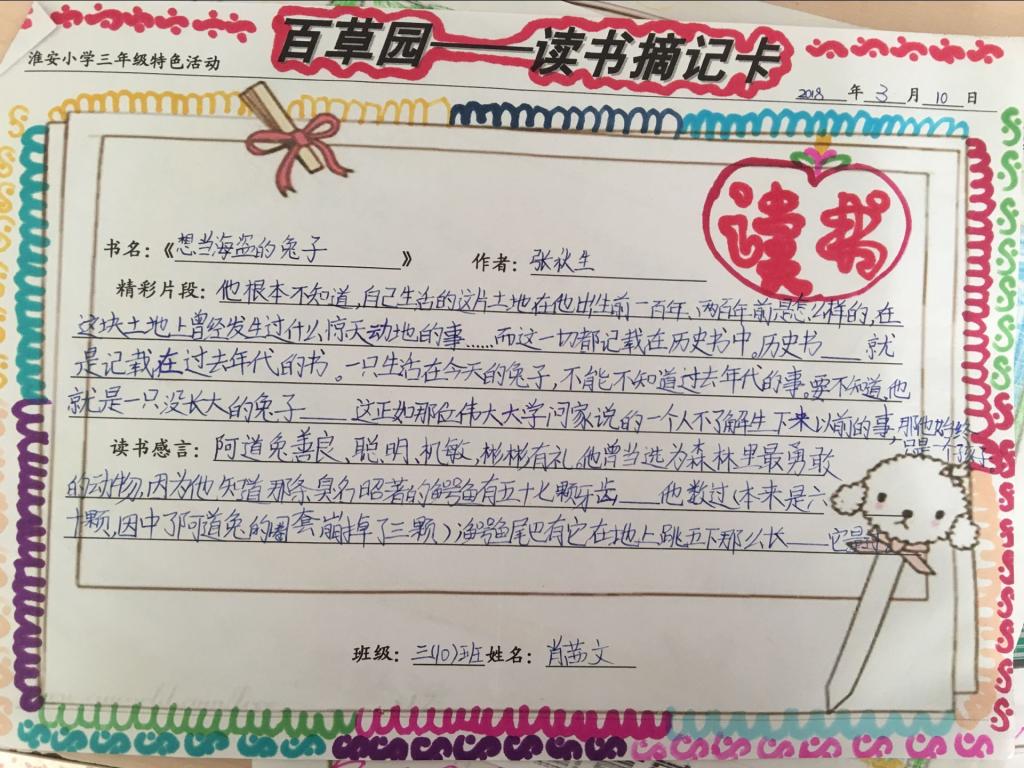 百草园——读书摘记卡
淮安小学三年级特色活动
2018年3月10日
读书
书名：《想当海盗的兔子》 作者：张秋生
精彩片段：他根本不知道，自己生活的这片土地在他出生前一百年、两百年前是怎么样的，在
这块土地上曾经发生过什么惊天动地的事……而这一切都记载在历史书中。历史书——就
是记载在过去年代的书。一只生活在今天的兔子，不能不知道过去年代的事。要不知道，他
就是一只没长大的兔子——这正如那位伟大大学问家说的一个人不了解生下来以前的事，那他始终
只是一个孩子
读书感言：阿道兔善良、聪明、机敏，彬彬有礼。他曾当选为森林里最勇敢
的动物，因为他知道那条臭名昭著的鳄鱼有五十七颗牙齿——他数过（本来是六
十颗，因中了阿道兔的圈套崩掉了三颗）鳄鱼尾巴有它在地上跳五下那么长——它
班级：三(10)班 姓名：肖茜文